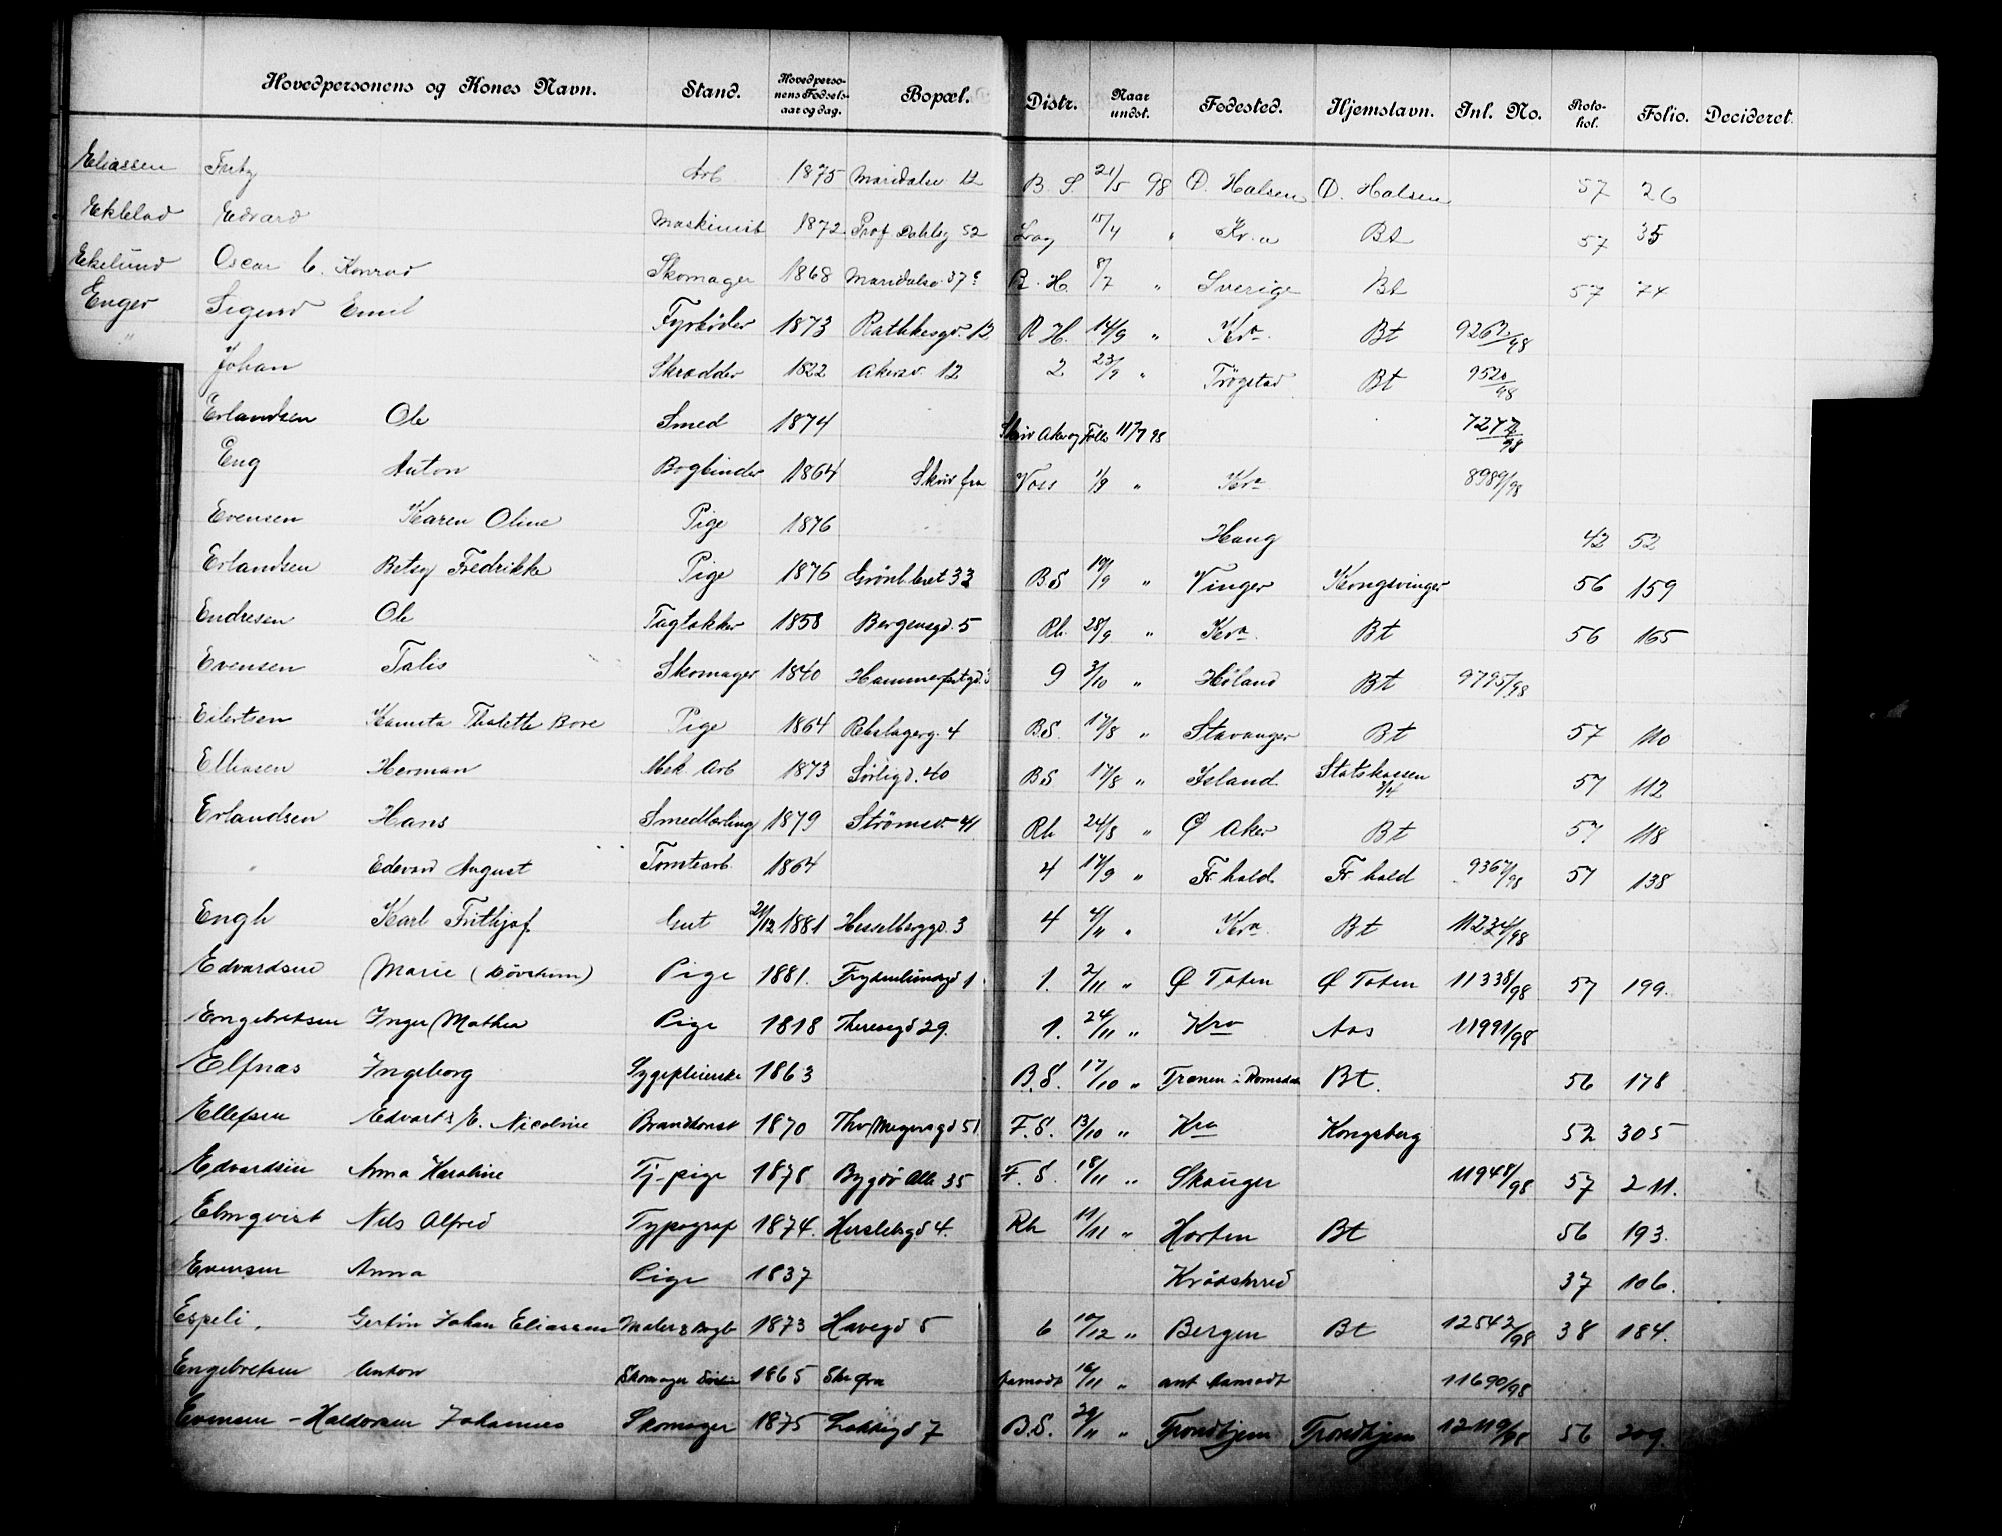 Hovedpersonens og Kones Navn. Stand. Hovedpersonens Fødsels-aar og dag. Bopæl. Distr. Naar undst. Fødested. Hjemstavn. Inl. No. Protokol. Folio. Decideret.
Eliassen Fritz Arb 1875 Maridalsv 12 B. S. 21/5 98 Ø. Halsen Ø. Halsen 57 26
Ekblad Edvard Maskinist 1872 Prof Dahlsg 52 15/4 " Kr.a Bt 57 35
Ekelund Oscar C. Konrad Skomager 1868 Maridalsv. 37 B. H. 8/7 " Sverige Bt 57 74
Enger Sigurd Emil Fyrbøder 1873 Rathkesgd. 12 R H. 14/9 " Kra. Bt 9262/98
" Johan Skrædder 1822 Akersv. 12 2 23/9 " Trøgstad Bt 9520/98
Erlandsen Ole Smed 1874 Skriv Aker og Follo 11/7 98 7277/98
Eng Anton Bogbinder 1864 Skriv fra Voss 1/9 " Kra 8989/98
Evensen Karen Oline Pige 1876 Haug 42 52
Erlandsen Betsy Fredrikke Pige 1876 Grønl leret 32 BS 19/9 " Vinger Kongsvinger 56 159
Endresen Ole Taglækker 1858 Bergensgd. 5 Rh. 28/9 " Kra. Bt 56 165
Evensen Talis Skomager 1840 Hammerfestgd. 9 3/10 " Høland Bt 9795/98
Eilertsen Thalette Bore Pige 1864 Rebslagerg. 4 B.S. 17/8 " Stavanger Bt 57 110
Elliasen Herman Mek Arb 1873 Sørligd. 40 BS 17/8 " Island Statskassen 3/4 57 112
Erlandsen Hans Smedlærling 1879 Strømsv. 41 Rh 24/8 " Ø Aker Bt 57 118
" Edevard August Tomtearb. 1864 4 14/9 " Fr. hald. Fr hald 9367/98 57 138
Engh Karl Frithjof Gut 21/12 1881 Hesselberggd. 3 4 4/11 " Kra Bt 11234/98
Edvardsen Marie (Døvstum) Pige 1881. Frydenlundsgd 1 1. 2/11 " Ø Toten Ø Toten 11338/98 57 199.
Engebretsen Inger Mathea Pige 1818 Theresegd 29. 1. 24/11 " Kra Aas 11991/98
Elfnæs Ingeborg Sygepleierske 1863 B.S. 17/10 " i Romsdalen Bt. 56 178
Ellefsen Edvart & E. Nicoline Brandkonst 1870 Thv Meyersgd 51 F.S. 13/10 " Kra Kongsberg 52 305
Edvardsen Anna Karoline Tj. pige 1878 Bygdø Alle 35 F. S. 18/11 " Skauger 11948/98 57 211.
Elmqvist Nils Alfred Typograf 1874. Herslebsgd 4. Rh 11/11 " Horten Bt 56 193.
Evensen Anna Pige 1837 Krødsherred 37 106.
Espeli. Johan Eliassen Maler 1873 Havegd 5 6 10/12 " Bergen Bt 12542/98 38 184.
Engebretsen Anton Skomager 1865 Skr fra Aamodt 16/11 " ant Aamodt 11690/98
Evensen - Haldorsen Johannes Skomager 1875 Lakkegd 7 B.S. 29/11 " Trondhjem Trondhjem 12119/98 56 209.